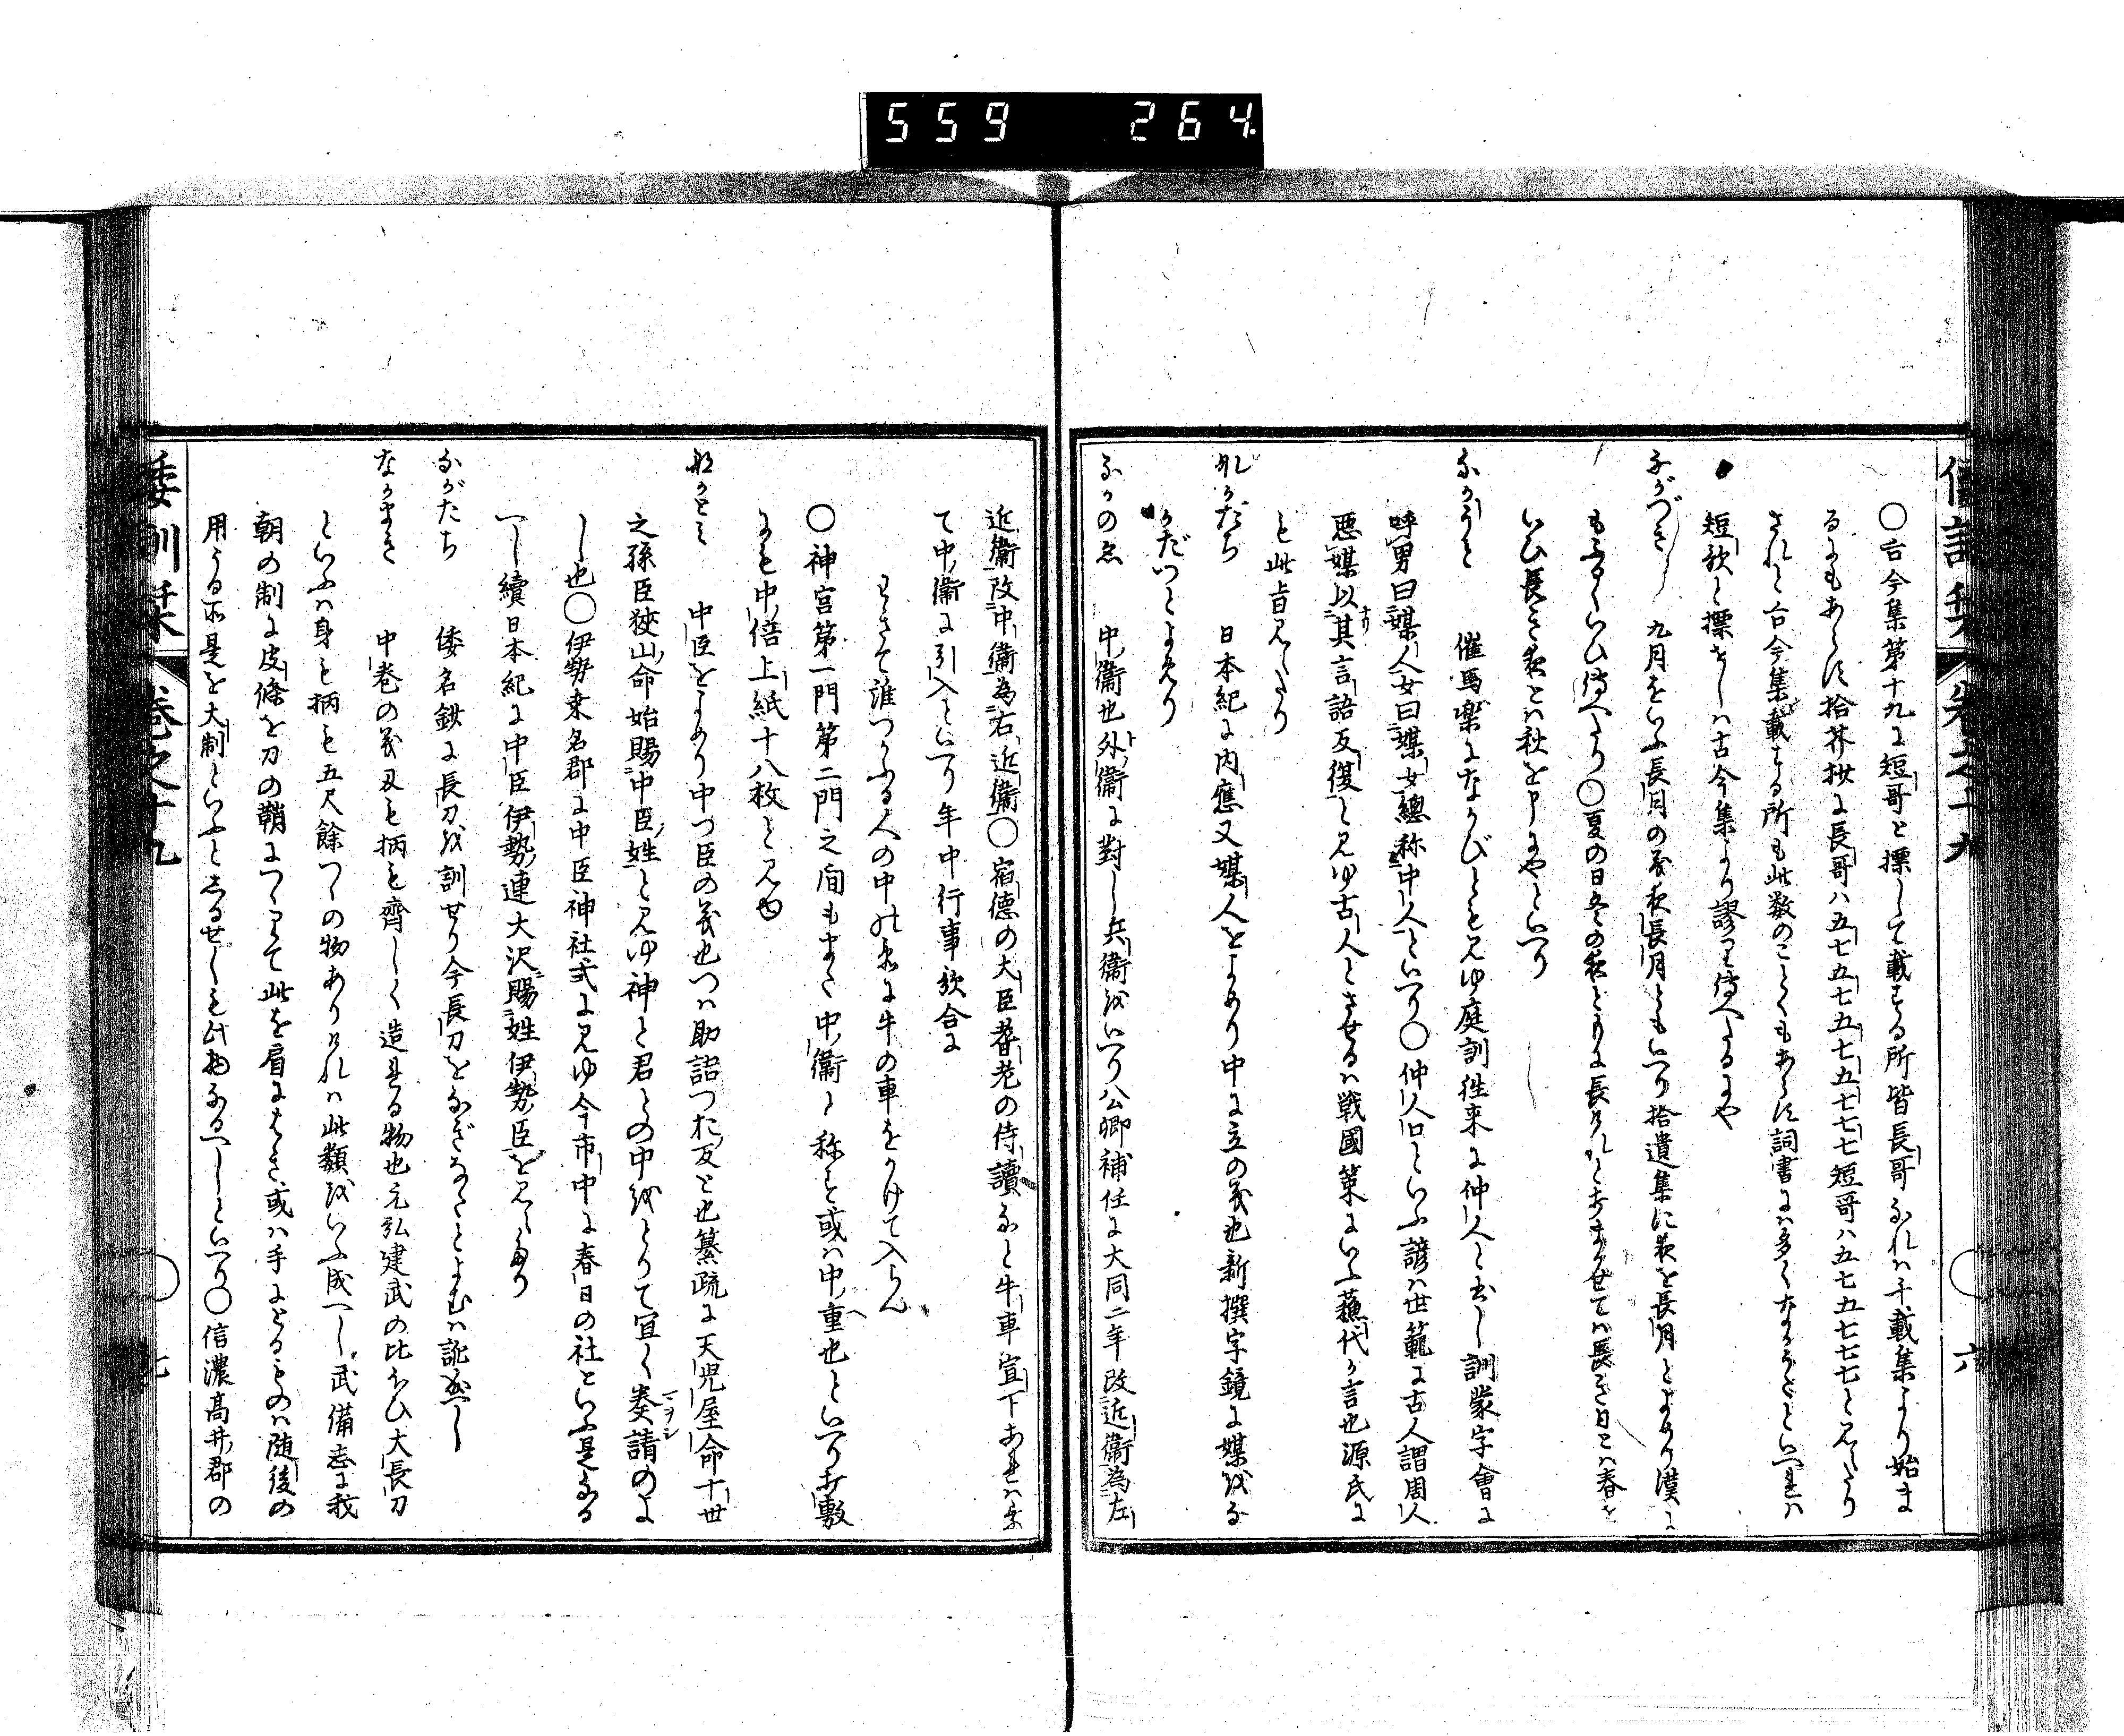 559 264.
倭訓栞 巻之十九 六
〇古今集第十九に短哥と標して載する所皆長哥なれハ千載集より始ま
るにもあらす拾芥抄に長哥ハ五七五七五七五七七七短哥ハ五七五七七七と見えたり
されと古今集載する所も此数のことくもあらす詞書にハ多くなかうたといへれハ
短歌と標せしハ古今集より謬りて傳へたるにや
ながづき 九月をいふ長月の義夜長月ともいへり拾遺集に夜を長月とよめり漢に
もふるくいひ傳へたり〇夏の日冬の夜ともに長けれとあはせてハ長き日とハ春を
いひ長き夜とハ秋を申にやといへり
なかうと 催馬楽になかびとと見ゆ庭訓徃来に仲人と書し訓蒙字會に
呼男曰媒人女曰媒女總称中人といへり〇仲人口といふ諺ハ世範に古人謂周人
悪媒以其言語反復と見ゆ古人とさせるハ戦國策にいふ蘓代か言也源氏に
も此旨見えたり
なかだち 日本紀に内應又媒人をよめり中に立の義也新撰字鏡に媒をな
かだつとよめり
なかのゑ 中衞也外衞に對し兵衞をいへり公卿補任に大同二年改近衞為左
近衞改中衞為右近衞〇宿德の大臣耆老の侍讀なと牛車宣下あれハ乗
て中衞に引入といへり年中行事歌合に
もゝさて誰つかふる人の中のゑに牛の車をかけて入らん
〇神宮第一門第二門之間もまた中衞と称す或ハ中重也といへり折敷
にも中倍上紙十八枚と見ゆ
なかとミ 中臣をよめり中つ臣の義也つハ助語つお反と也纂疏に天児屋命十世
之孫臣狹山命始賜中臣姓と見ゆ神と君との中をとりて宜く奏請のよ
し也〇伊勢桒名郡に中臣神社式に見ゆ今市中に春日の社といふ是なる
へし續日本紀に中臣伊勢連大沢賜姓伊勢臣と見えたり
ながたち 倭名鈔に長刀を訓せり今長刀をなぎなたとよむハ訛也へし
なかまき 中巻の義刄も柄も齊しく造れる物也元弘建武の比よりひ大長刀
といふハ身も柄も五尺餘つゝの物ありけれハ此類をいふ成へし武備志に我
朝の制に皮條を刀の鞘につくりて此を肩にはき或ハ手にとるものハ随後の
用うる所是を大制といふとしるせしも此物なるへしといへり〇信濃高井郡の
倭訓栞 巻之十九 七